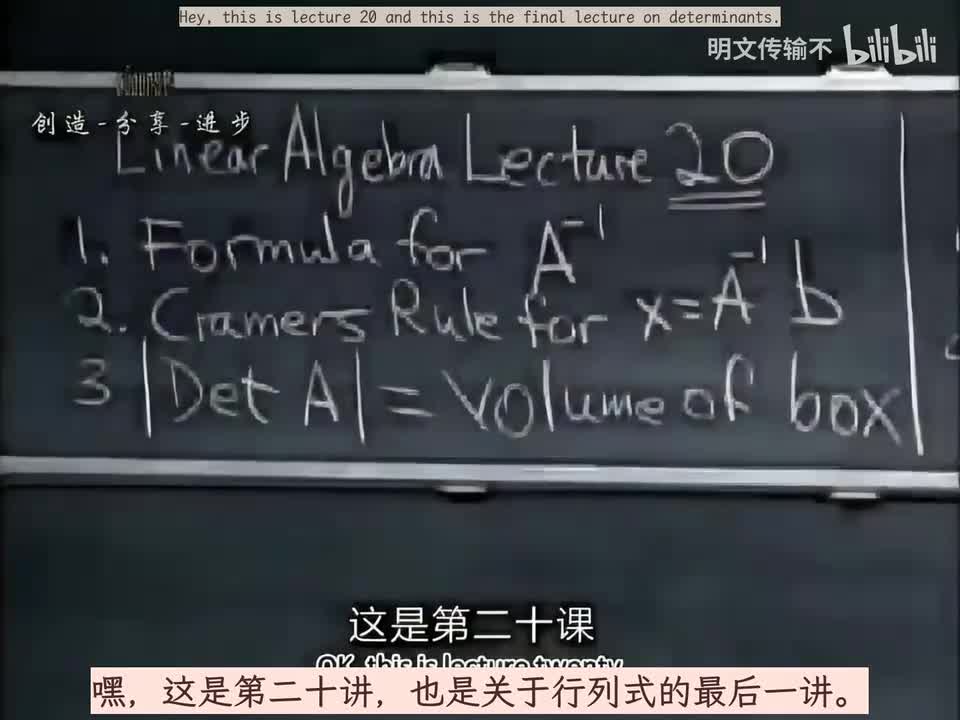 Hey, this is lecture 20 and this is the final lecture on determinants.
明文传输不 bilibili
创造-分享-进步
Linear Algebra Lecture 20
1. Formula for A⁻¹
2. Cramers Rule for x = A⁻¹ b
3 |Det A| = Volume of box
这是第二十课
OK, this is lecture twenty
嘿，这是第二十讲，也是关于行列式的最后一讲。